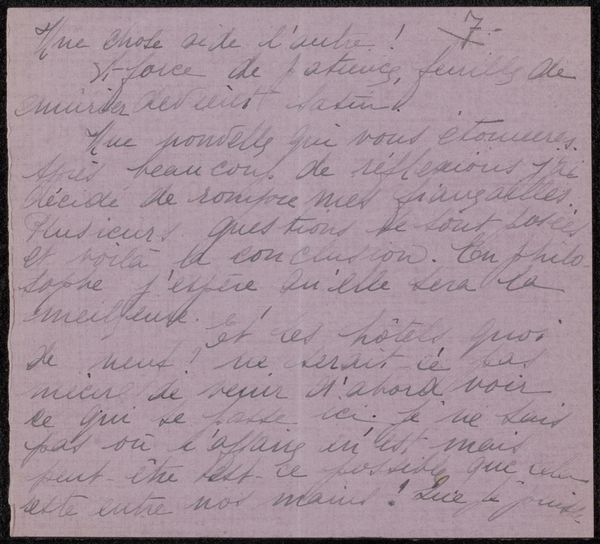 Une chose aide l'autre ! 7
À force de patience, feuille de
mûrier devient satin.
Une nouvelle qui vous étonnera.
Après beaucoup de réflexions j'ai
décidé de rompre mes fiançailles.
Plusieurs questions se sont posées
et voilà la conclusion. En philo-
sophe j'espère qu'elle sera la
meilleure.
Et les hôtels quoi
de neuf ! ne serait-ce pas
mieux de venir d'abord voir
ce qui se passe ici. Je ne sais
pas où l'affaire en est, mais
peut-être est-ce possible que cela
reste entre nos mains ! Que je puisse